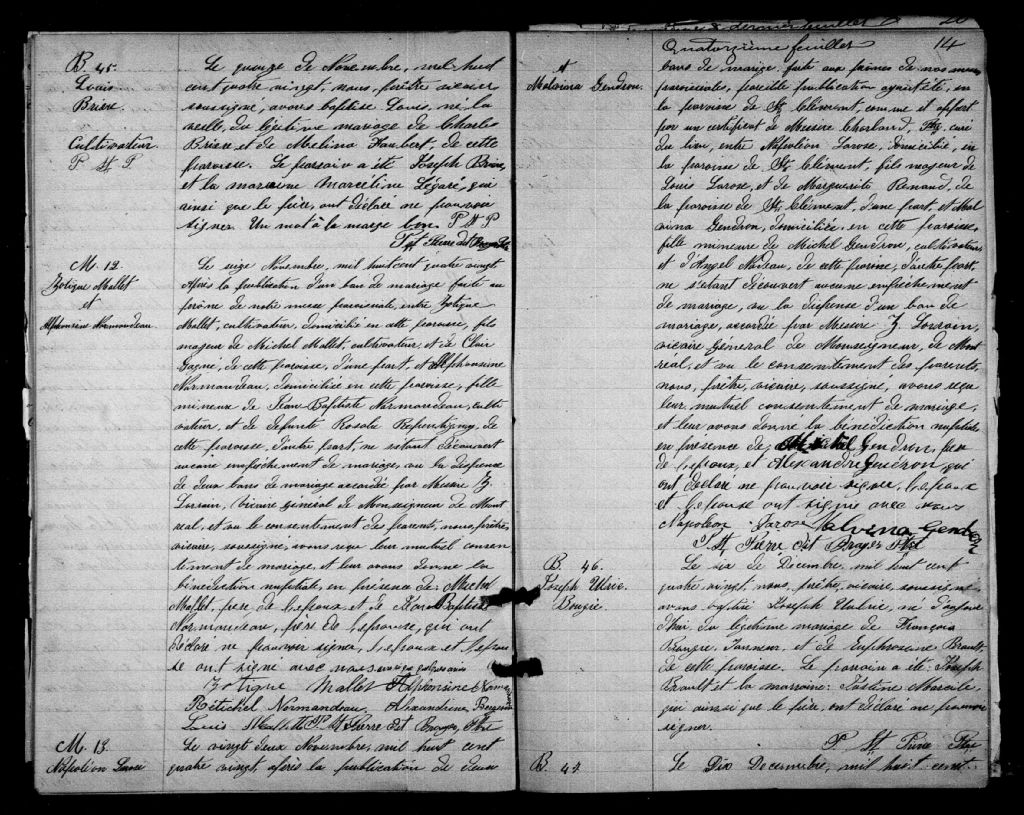 B. 45.
Louis
Brière.
Cultivateur.
P St P
Le quinze de Novembre, mil huit
cent quatre vingt, nous, prêtre vicaire
soussigné, avons baptisé Louis, né la
veille, du légitime mariage de Charles
Brière et de Mélina Haubert, de cette
paroisse. Le parrain a été Joseph Brière
et la marraine Marcéline Légaré, qui
ainsi que le père, ont déclaré ne pouvoir
signer. Un mot à la marge bon. P St P
P St Pierre dit Brayer Ptr
M. 12
Zotique Mallet
et
Alphonsine Normandeau.
Le seize Novembre, mil huit cent quatre vingt
Après la publication d'un ban de mariage faite au
prône de notre messe paroissiale, entre Zotique
Mallet, cultivateur, domicilié en cette paroisse, fils
majeur de Michel Mallet, cultivateur, et de Clair
Gagné, de cette paroisse, d'une part, et Alphonsine
Normandeau, domiciliée en cette paroisse, fille
mineure de Jean Baptiste Normandeau, culti
vateur, et de défunte Rosalie Repentigny, de
cette paroisse, d'autre part, ne s'étant découvert
aucune empêchement de mariage, vu la dispense
de deux bans de mariage accordée par Messire Z.
Lorrain, Vicaire Général de Monseigneur de Mont
réal, et vu le consentement des parents, nous, prêtre,
vicaire, soussigné, avons reçu leur mutuel consen
tement de mariage, et leur avons donné la
bénédiction nuptiale, en présence de Michel
Mallet, père de l'époux et de Jean Baptiste
Normandeau, père de l'épouse, qui ont
déclaré ne pouvoir signer, l'époux et l'épou
se ont signé avec nous
Zotique Mallet Alphonsine Norman
Normandeau, Alexandrine
Louis P St Pierre dit Brayer, Ptr
M. 13.
Napoléon Larose
Le vingt deux Novembre, mil huit cent
quatre vingt, après la publication de deux
Quatorzième feuillet
14
et
Malvina Gendron.
bans de mariage faite aux prônes de nos messes
paroissiales, pareille publication ayant été, en
la paroisse de St Clément, comme il appert
par un certificat de Messire Charland, Ptr, curé
du lieu, entre Napoléon Larose, domicilié, en
la paroisse de St Clément, fils majeur de
Louis Larose, et de Marguerite Renaud, de
la paroisse de St Clément, d'une part, et Mal
vina Gendron, domiciliée, en cette paroisse,
fille mineure de Michel Gendron, cultivateur
et d'Angel Nadeau, de cette paroisse, d'autre part,
ne s'étant découvert aucune empêchement
de mariage, vu la dispense d'un ban de
mariage, accordée par Messire Z Lorrain,
vicaire Général de Monseigneur, de Mont
réal, et vu le consentement des parents,
nous, prêtre, vicaire, soussigné, avons reçu
leur mutuel consentement de mariage,
et leur avons donné la bénédiction nuptiale
en présence de Michel Gendron, père
de l'épouse, et Alexandre Gendron, qui
ont déclaré ne pouvoir signer, l'époux
et l'épouse ont signé avec nous
Napoléon Larose Malvina Gendron
P St Pierre dit Brayer Ptr
B. 46.
Joseph Ulric
Le six de Décembre, mil huit cent
quatre vingt, nous, prêtre, vicaire, soussigné,
avons baptisé Joseph Ulric, né d'aujour
d'hui, du légitime mariage de François
et de Euphrosine Brault,
de cette paroisse. Le parrain a été Joseph
Brault et la marraine Justine Marcile,
qui ainsi que le père, ont déclaré ne pouvoir
signer.
P St Pierre Ptr
B. 47.
Le Dix Décembre, mil huit cent